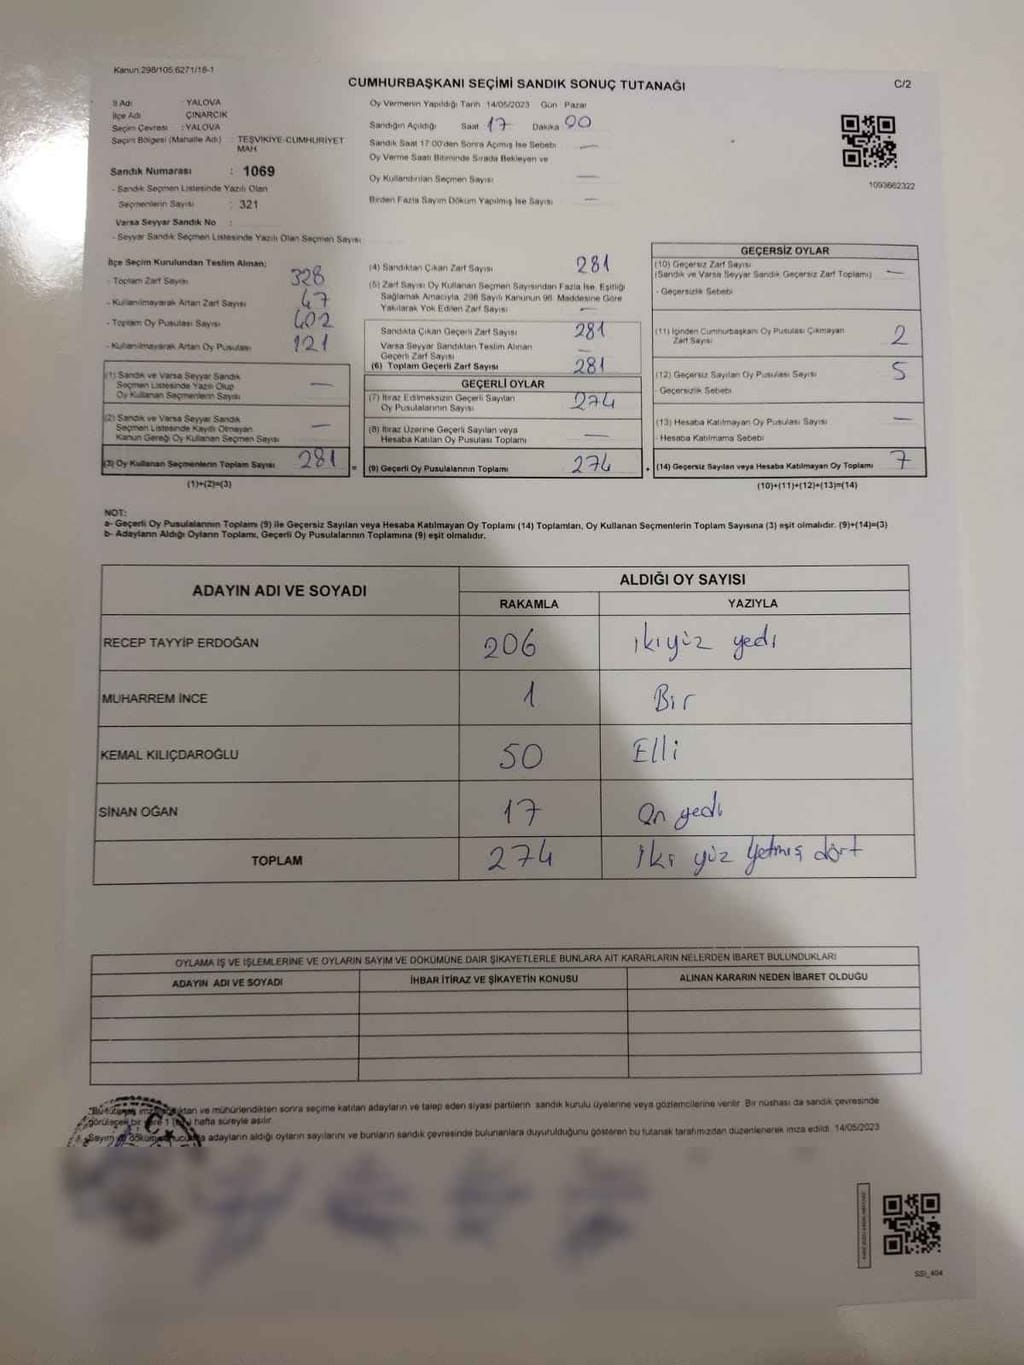 Kanun:298/105,6271/18-1
CUMHURBAŞKANI SEÇİMİ SANDIK SONUÇ TUTANAĞI
C/2
İl Adı : YALOVA
İlçe Adı : ÇINARCIK
Seçim Çevresi : YALOVA
Seçim Bölgesi (Mahalle Adı) : TEŞVİKİYE-CUMHURİYET MAH
Sandık Numarası : 1069
- Sandık Seçmen Listesinde Yazılı Olan
Seçmenlerin Sayısı : 321
Varsa Seyyar Sandık No :
- Seyyar Sandık Seçmen Listesinde Yazılı Olan Seçmen Sayısı
Oy Vermenin Yapıldığı Tarih 14/05/2023 Gün Pazar
Sandığın Açıldığı Saat 17 Dakika 00
Sandık Saat 17:00'den Sonra Açımış İse Sebebi —
Oy Verme Saati Bitiminde Sırada Bekleyen ve
Oy Kullandırılan Seçmen Sayısı —
Birden Fazla Sayım Döküm Yapılmış İse Sayısı —
1093662322
İlçe Seçim Kurulundan Teslim Alınan:
- Toplam Zarf Sayısı 328
- Kullanılmayarak Artan Zarf Sayısı 47
- Toplam Oy Pusulası Sayısı 402
- Kullanılmayarak Artan Oy Pusulası 121
(1) Sandık ve Varsa Seyyar Sandık
Seçmen Listesinde Yazılı Olup
Oy Kullanan Seçmenlerin Sayısı —
(2) Sandık ve Varsa Seyyar Sandık
Seçmen Listesinde Kayıtlı Olmayan
Kanun Gereği Oy Kullanan Seçmen Sayısı —
(3) Oy Kullanan Seçmenlerin Toplam Sayısı 281 =
(1)+(2)=(3)
(4) Sandıktan Çıkan Zarf Sayısı 281
(5) Zarf Sayısı Oy Kullanan Seçmen Sayısından Fazla İse, Eşitliği
Sağlamak Amacıyla, 298 Sayılı Kanunun 98. Maddesine Göre
Yakılarak Yok Edilen Zarf Sayısı —
Sandıkta Çıkan Geçerli Zarf Sayısı 281
Varsa Seyyar Sandıktan Teslim Alınan
Geçerli Zarf Sayısı —
(6) Toplam Geçerli Zarf Sayısı 281
GEÇERLİ OYLAR
(7) İtiraz Edilmeksizin Geçerli Sayılan
Oy Pusulalarının Sayısı 274
(8) İtiraz Üzerine Geçerli Sayılan veya
Hesaba Katılan Oy Pusulası Toplamı —
(9) Geçerli Oy Pusulalarının Toplamı 274 +
GEÇERSİZ OYLAR
(10) Geçersiz Zarf Sayısı
(Sandık ve Varsa Seyyar Sandık Geçersiz Zarf Toplamı) —
- Geçersizlik Sebebi
(11) İçinden Cumhurbaşkanı Oy Pusulası Çıkmayan
Zarf Sayısı 2
(12) Geçersiz Sayılan Oy Pusulası Sayısı 5
-Geçersizlik Sebebi
(13) Hesaba Katılmayan Oy Pusulası Sayısı —
- Hesaba Katılmama Sebebi
(14) Geçersiz Sayılan veya Hesaba Katılmayan Oy Toplamı 7
(10)+(11)+(12)+(13)=(14)
NOT:
a- Geçerli Oy Pusulalarının Toplamı (9) ile Geçersiz Sayılan veya Hesaba Katılmayan Oy Toplamı (14) Toplamları, Oy Kullanan Seçmenlerin Toplam Sayısına (3) eşit olmalıdır. (9)+(14)=(3)
b- Adayların Aldığı Oyların Toplamı, Geçerli Oy Pusulalarının Toplamına (9) eşit olmalıdır.
ADAYIN ADI VE SOYADI
ALDIĞI OY SAYISI
RAKAMLA YAZIYLA
RECEP TAYYİP ERDOĞAN 206 ikiyüz yedi
MUHARREM İNCE 1 Bir
KEMAL KILIÇDAROĞLU 50 Elli
SİNAN OĞAN 17 On yedi
TOPLAM 274 İki yüz yetmiş dört
OYLAMA İŞ VE İŞLEMLERİNE VE OYLARIN SAYIM VE DÖKÜMÜNE DAİR ŞİKAYETLERLE BUNLARA AİT KARARLARIN NELERDEN İBARET BULUNDUKLARI
ADAYIN ADI VE SOYADI İHBAR İTİRAZ VE ŞİKAYETİN KONUSU ALINAN KARARIN NEDEN İBARET OLDUĞU
Bu tutanak ve mühürlendikten sonra seçime katılan adayların ve talep eden siyasi partilerin sandık kurulu üyelerine veya gözlemcilerine verilir. Bir nüshası da sandık çevresinde
görülecek bir yere 1 hafta süreyle asılır.
Sayım adayların aldığı oyların sayılarını ve bunların sandık çevresinde bulunanlara duyurulduğunu gösteren bu tutanak tarafımızdan düzenlenerek imza edildi. 14/05/2023
SSI_404